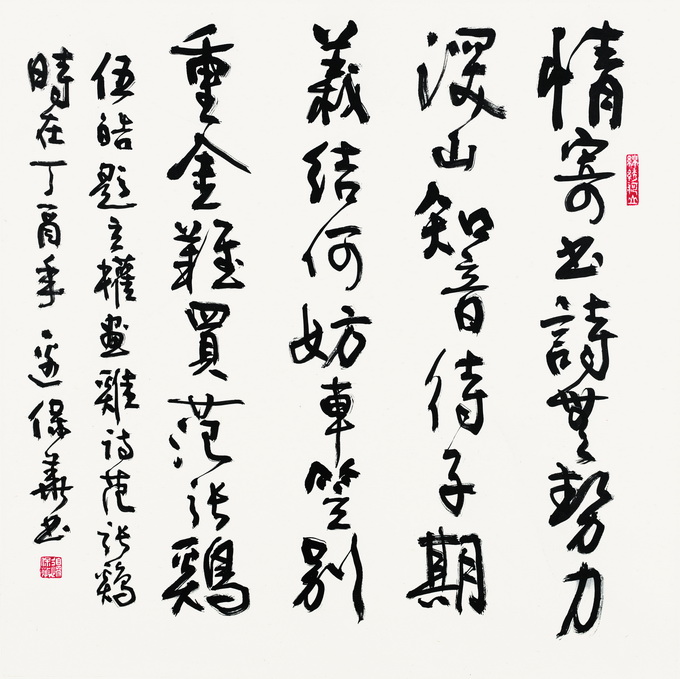 情寄书詩無勢力
深山知音待子期
義結何妨車笠别
重金難買范张鷄
伍皓题立權畫雞诗范张鷄
時在丁酉年邊保華书